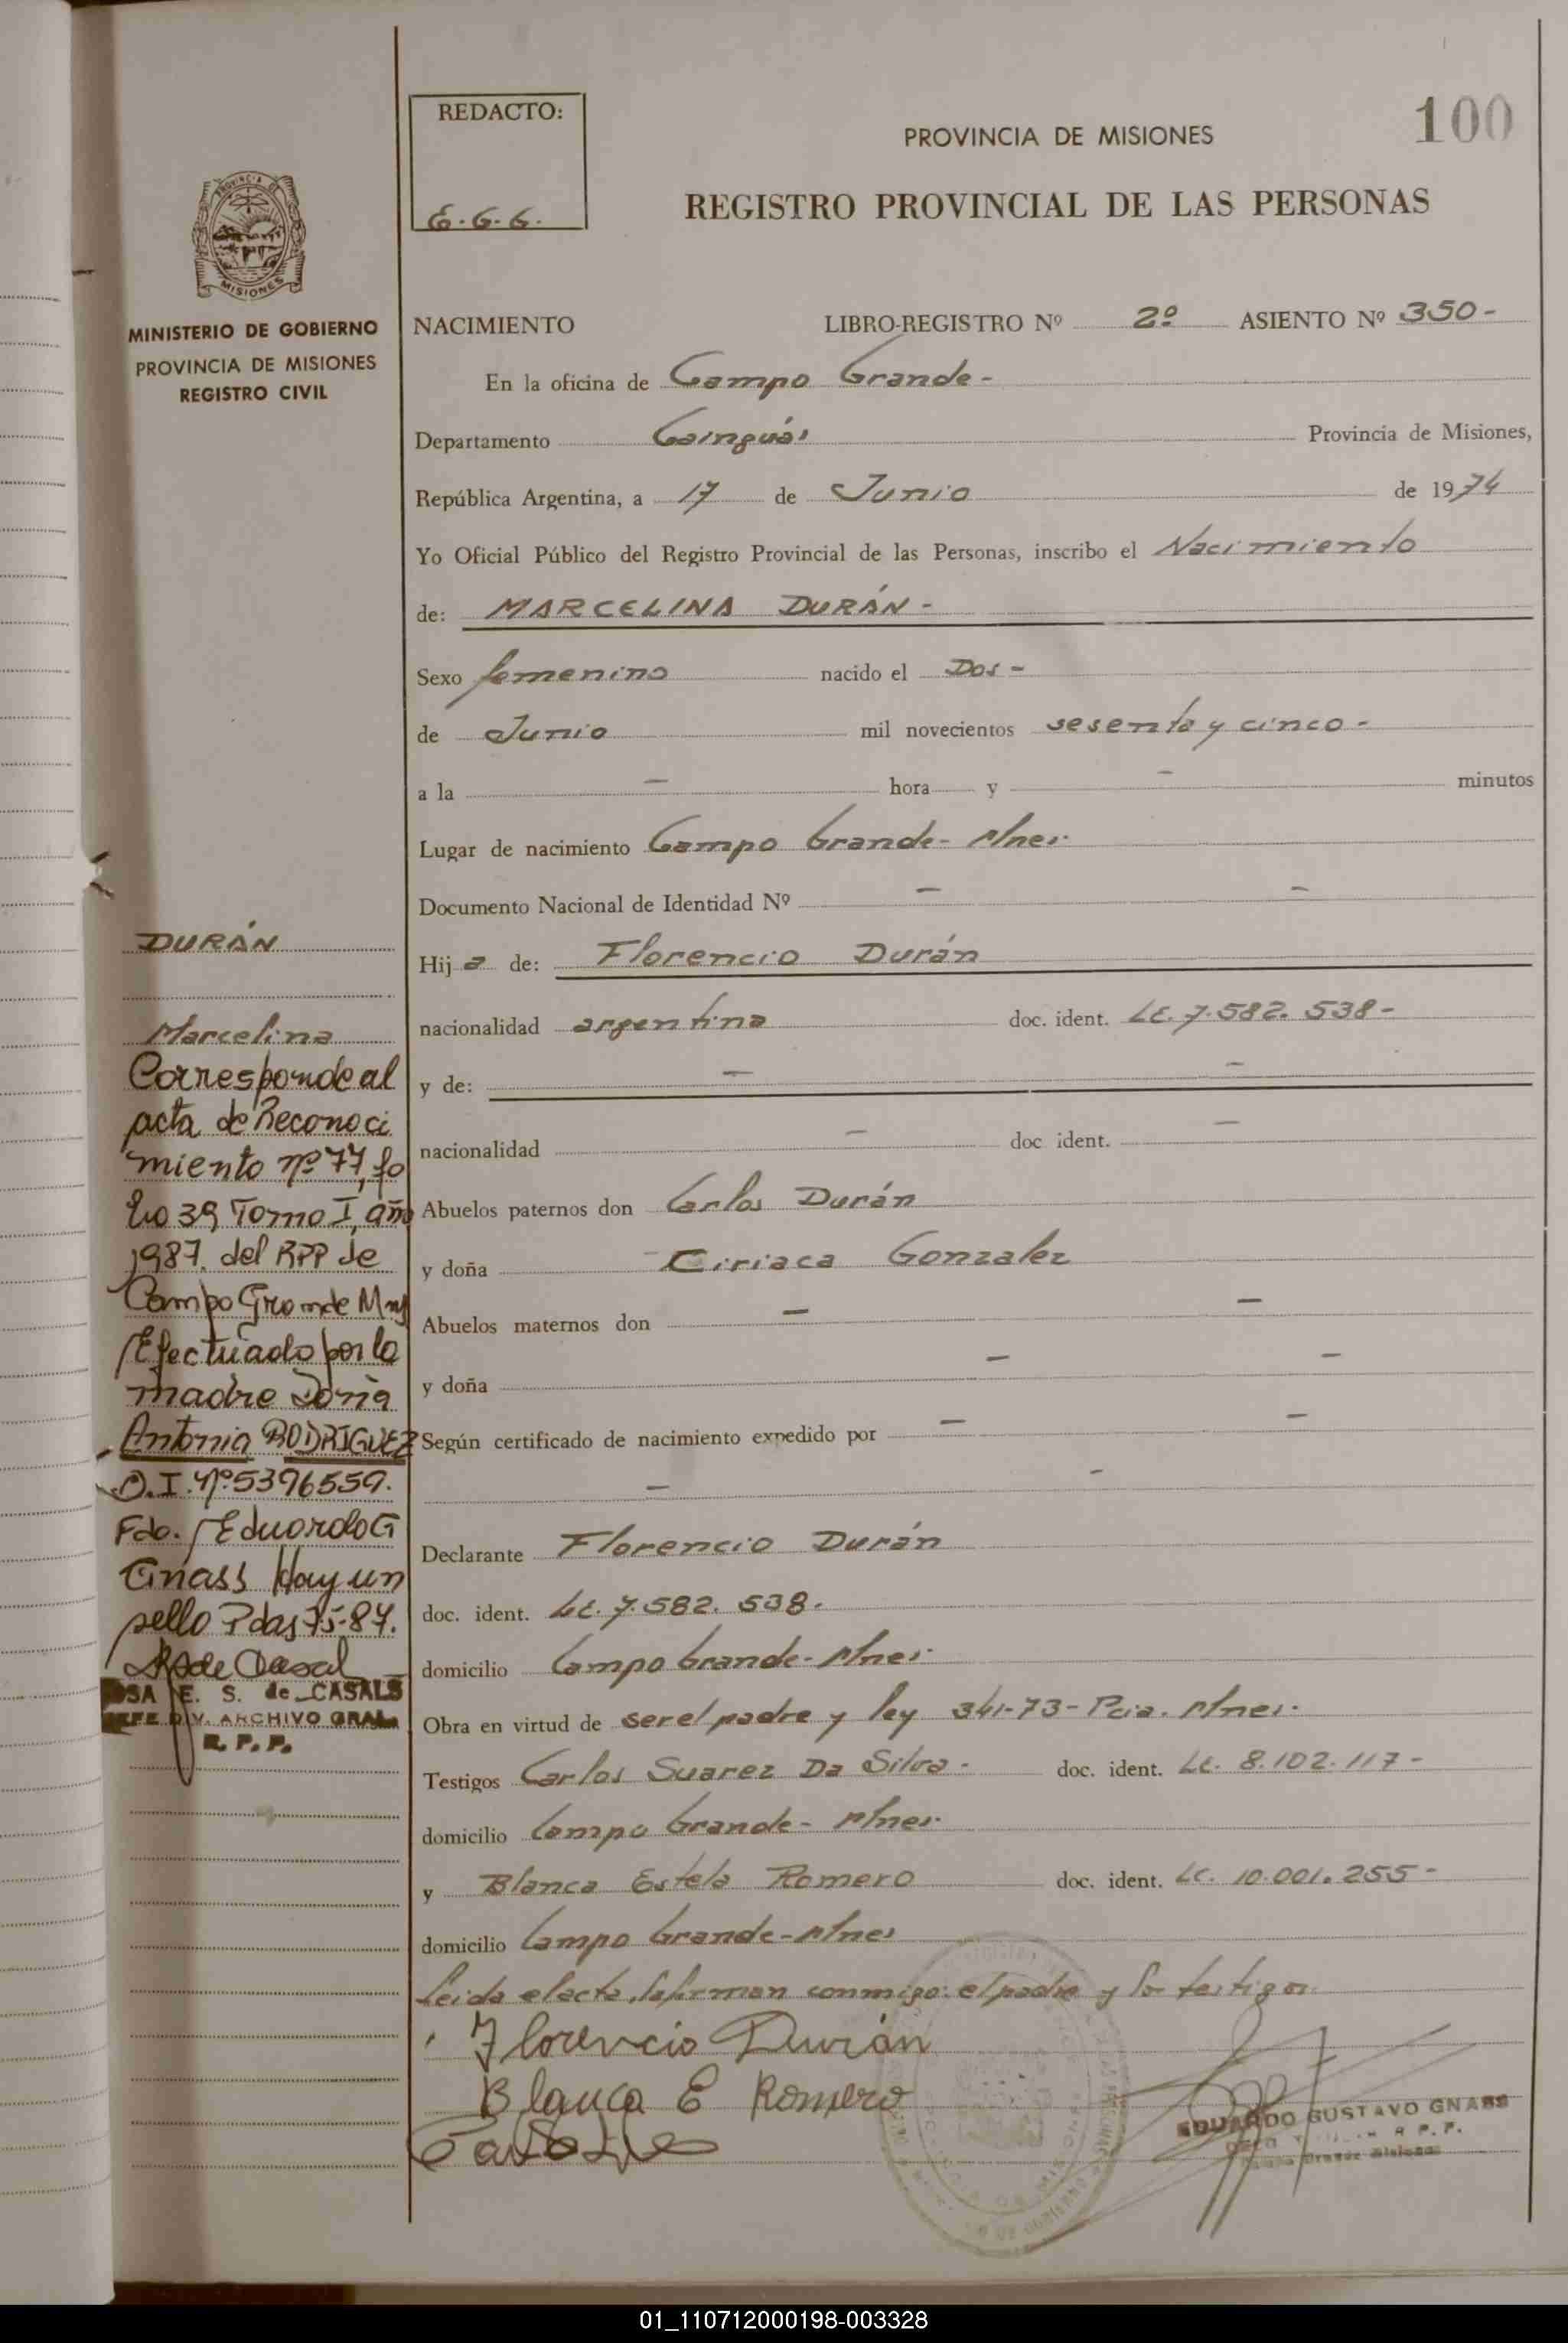 REDACTO:
E.G.G.
100
PROVINCIA DE MISIONES
REGISTRO PROVINCIAL DE LAS PERSONAS
PROVINCIA DE
MISIONES
MINISTERIO DE GOBIERNO
PROVINCIA DE MISIONES
REGISTRO CIVIL
NACIMIENTO LIBRO-REGISTRO Nº 2º ASIENTO Nº 350-
En la oficina de Campo Grande-
Departamento Cainguás Provincia de Misiones,
República Argentina, a 17 de Junio de 1974
Yo Oficial Público del Registro Provincial de las Personas, inscribo el Nacimiento
de: MARCELINA DURÁN-
Sexo femenino nacido el Dos-
de Junio mil novecientos sesenta y cinco-
a la - hora y - minutos
Lugar de nacimiento Campo Grande- Mnes.
Documento Nacional de Identidad Nº - -
Hija de: Florencio Durán
nacionalidad argentina doc. ident. LE. 7.582.538-
y de: - -
nacionalidad - doc ident. -
Abuelos paternos don Carlos Durán
y doña Ciriaca Gonzalez
Abuelos maternos don - -
y doña - -
Según certificado de nacimiento expedido por - -
- -
Declarante Florencio Durán
doc. ident. LE. 7.582.538.
domicilio Campo Grande- Mnes.
Obra en virtud de ser el padre y ley 341-73- Pcia. Mnes.
Testigos Carlos Suarez Da Silva- doc. ident. LE. 8.102.117-
domicilio Campo Grande- Mnes.
y Blanca Estela Romero doc. ident. LC. 10.001.255-
domicilio Campo Grande-Mnes
Leida el acta, la firman conmigo: el padre y los testigos.
Florencio Durán
Blanca E Romero
EDUARDO GUSTAVO GNASS
R P. P.
Campo Grande Misiones
DURÁN
Marcelina
Corresponde al
acta de Reconoci
miento nº 77, fo
lio 39 Tomo I, año
1987. del RPP de
Campo Grande Mns
Efectuado por la
madre Doña
Antonia RODRIGUEZ
D.I. Nº 5396559.
Fdo. Eduardo G
Gnass Hay un
sello Pdas 75-87.
E. S. de CASALS
JEFE DIV. ARCHIVO GRAL.
R. P. P.
01_110712000198-003328